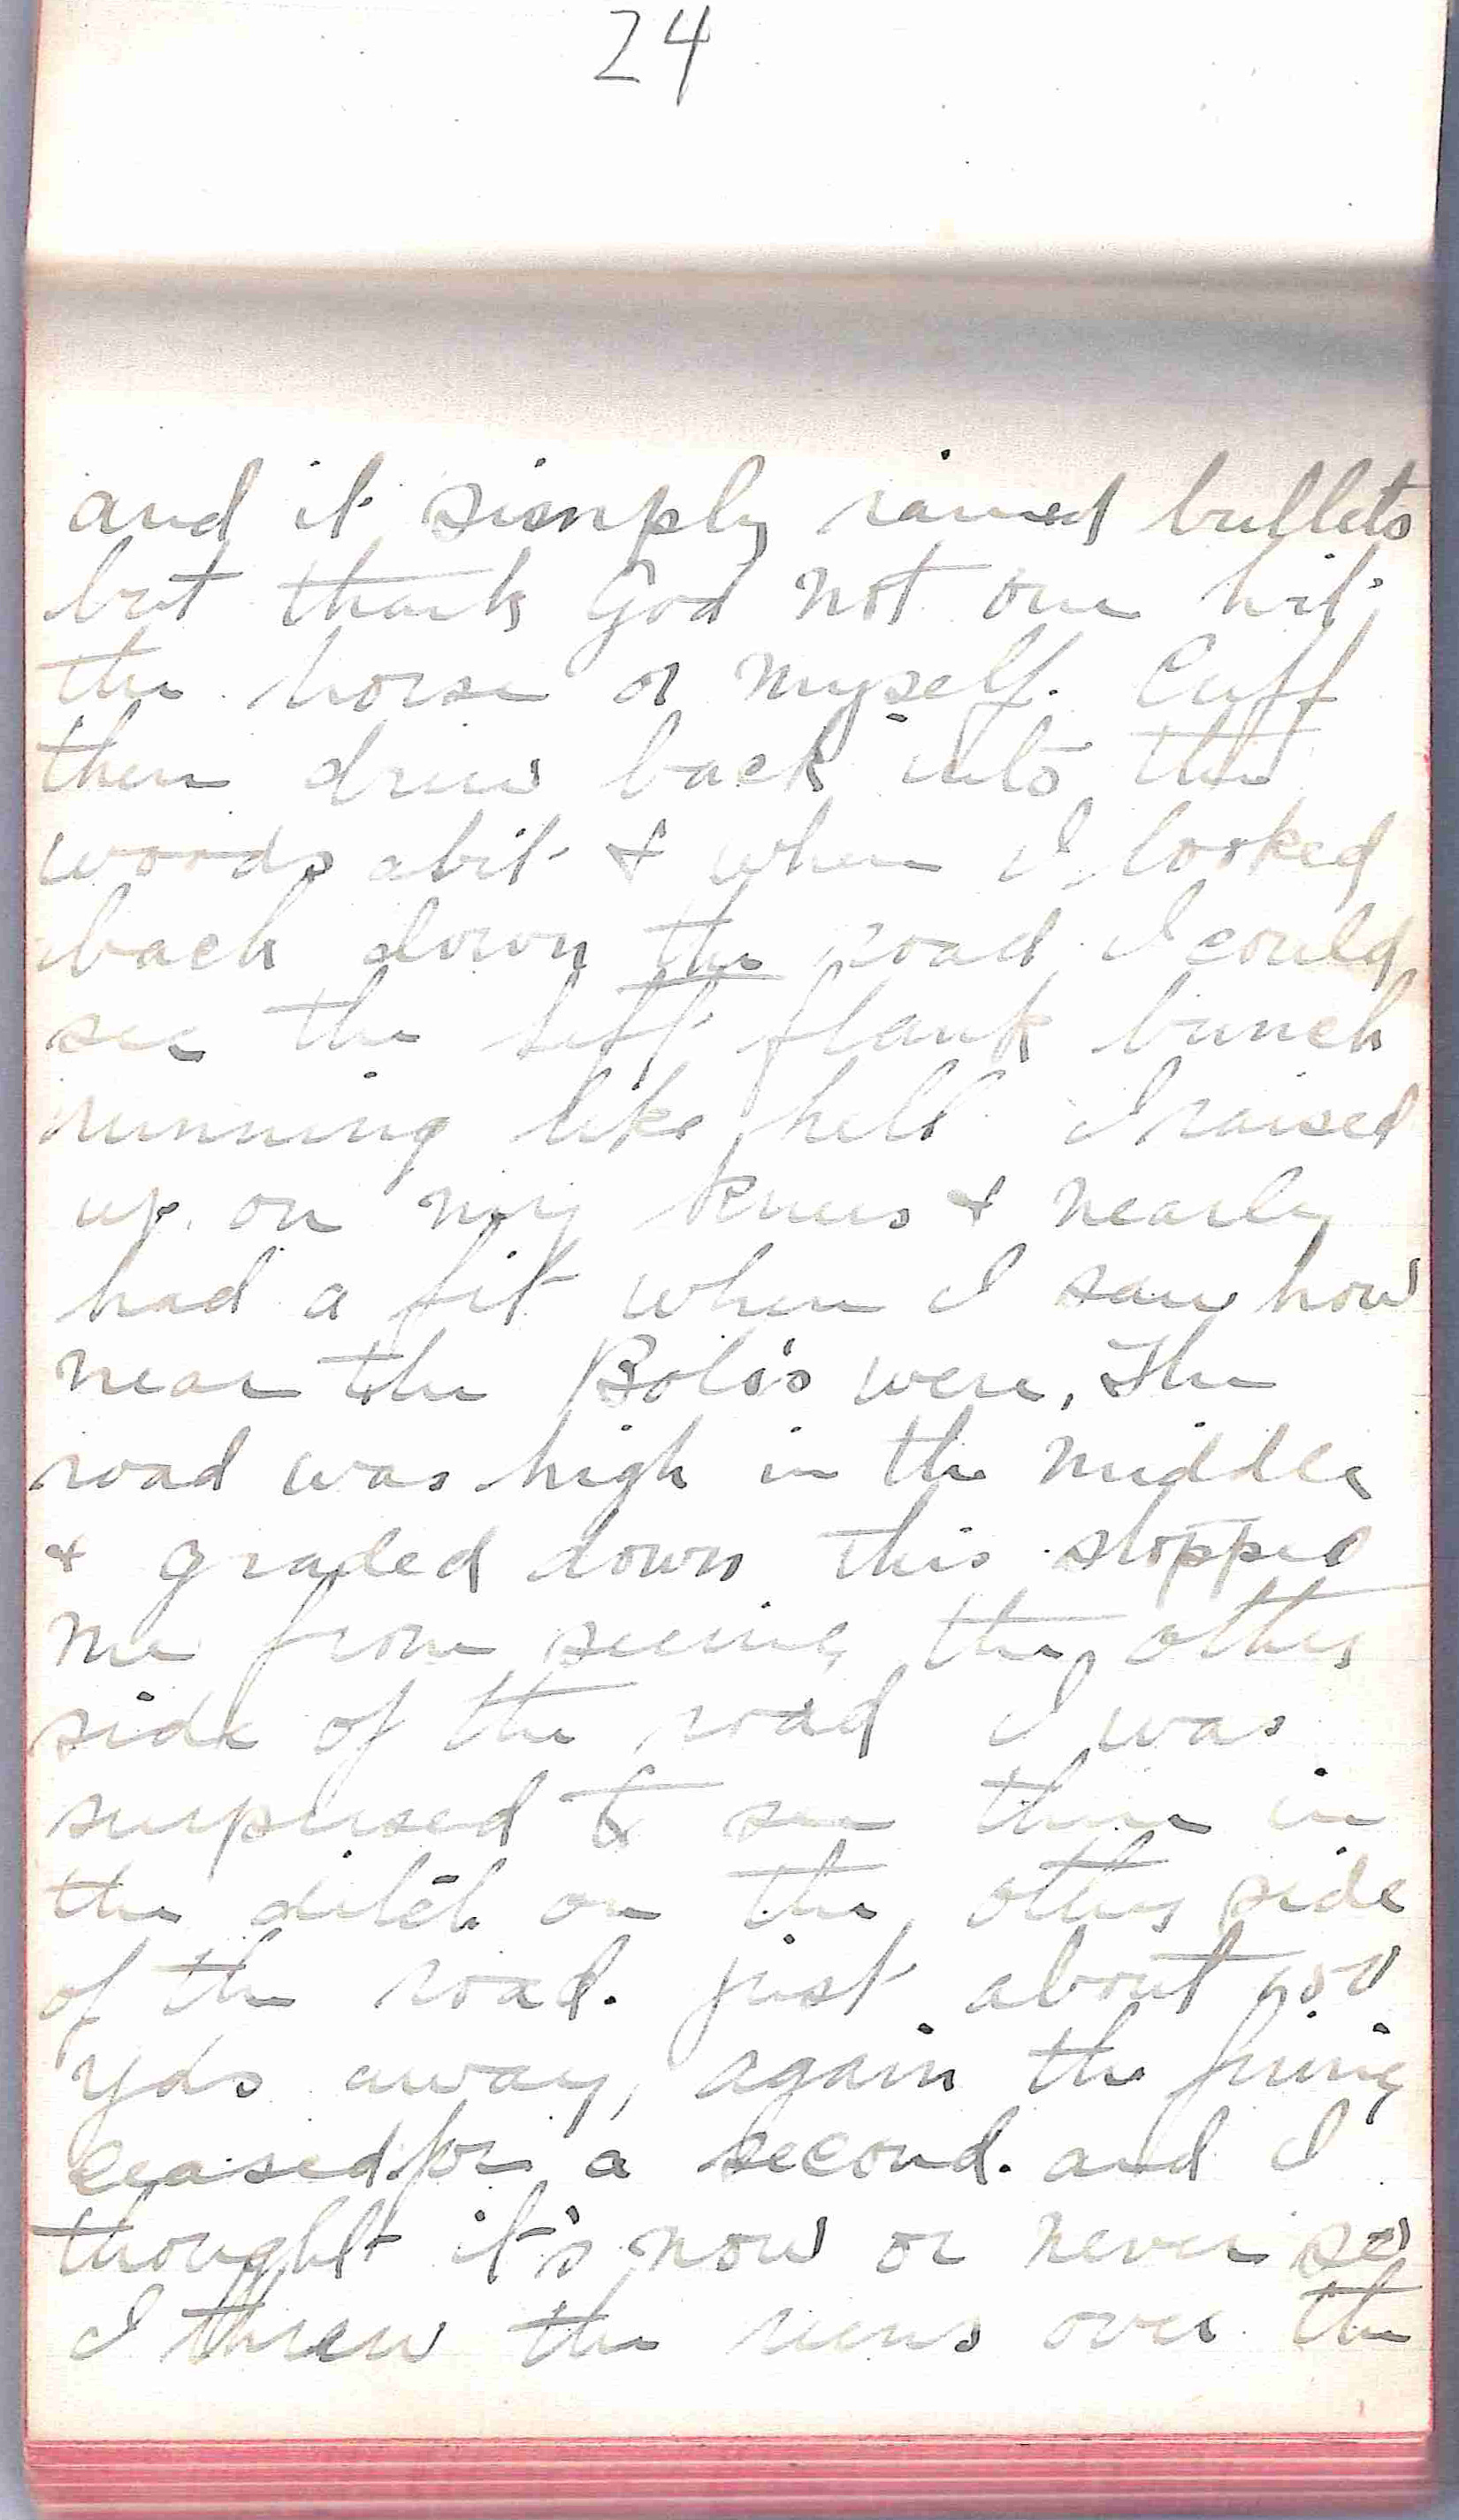 24
and it simply rained bullets
but thank God not one hit
the horse or myself. Cuff
then drew back into the
woods abit & when I looked
back down the road I could
see the left flank bunch
running like hell I raised
up on my knees & nearly
had a fit when I saw how
near the Bolo's were, The
road was high in the middle
& graded down this stopped
me from seeing the other
side of the road I was
surprised to see them in
the ditch on the other side
of the road. just about
yds away, again the firing
ceased for a second. and I
thought it's now or never so
I threw the reins over the